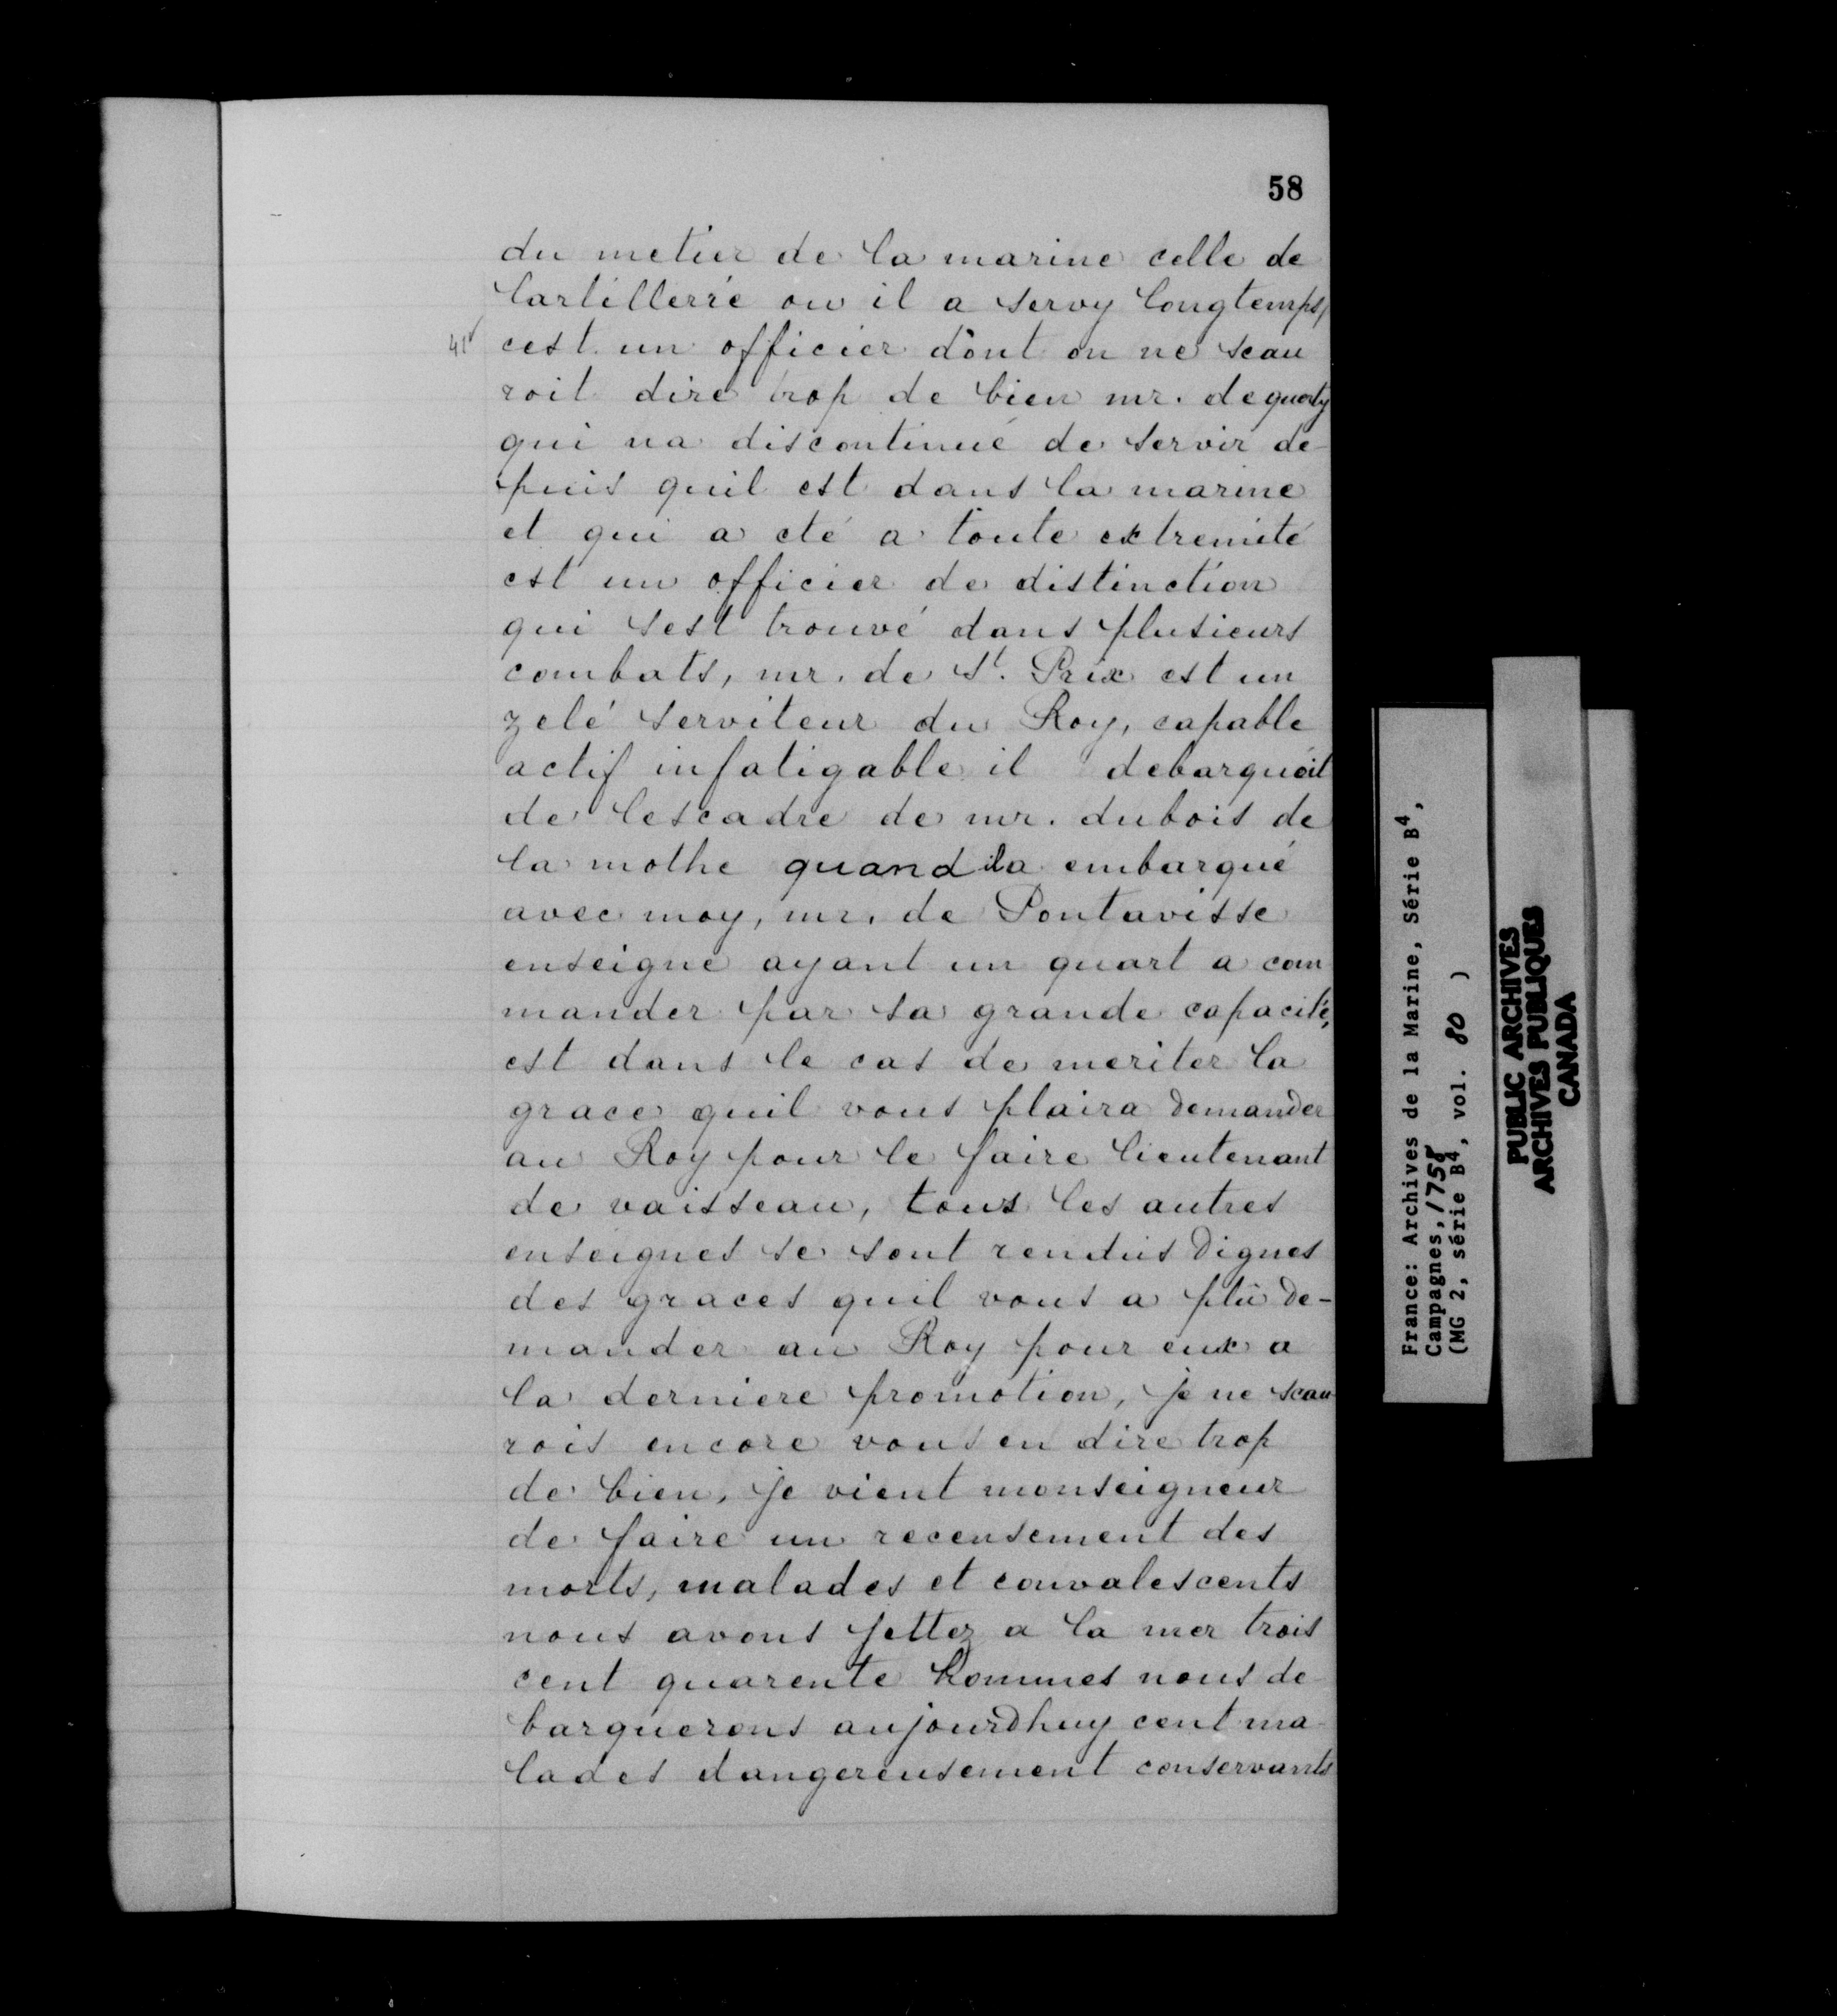 58
du metier de la marine celle de
lartillerie ou il a servy longtemps,
41 cest un officier dont on ne scau
roit dire trop de bien mr. de quarty
qui na discontinué de servir de-
puis quil est dans la marine
et qui a eté a toute extremité
est un officier de distinction
qui sest trouvé dans plusieurs
combats, mr. de St. Prix est un
zelé serviteur du Roy, capable
actif infatigable il debarquoit
de lescadre de mr. dubois de
la mothe quand ila embarqué
avec moy, mr. de Pontavisse
enseigne ayant un quart a com
mander par sa grande capacité,
est dans le cas de meriter la
grace quil vous plaira demander
au Roy pour le faire lieutenant
de vaisseau, tous les autres
enseignes se sont rendus dignes
des graces quil vous a plû de-
mander au Roy pour eux a
la derniere promotion, je ne scau-
rois encore vous en dire trop
de bien, je vient monseigneur
de faire un recensement des
morts, malades et convalescents
nous avons jettez a la mer trois
cent quarente hommes nous de
barquerons aujourdhuy cent ma-
lades dangereusement conservants
France: Archives de la Marine, Série B4,
Campagnes, 1758
(MG 2, série B4, vol. 80 )
PUBLIC ARCHIVES
ARCHIVES PUBLIQUES
CANADA